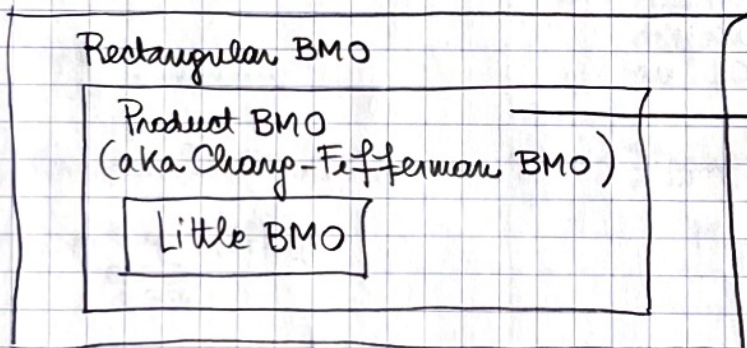 Rectangular BMO
Product BMO
(aka Chang-Fefferman BMO)
Little BMO